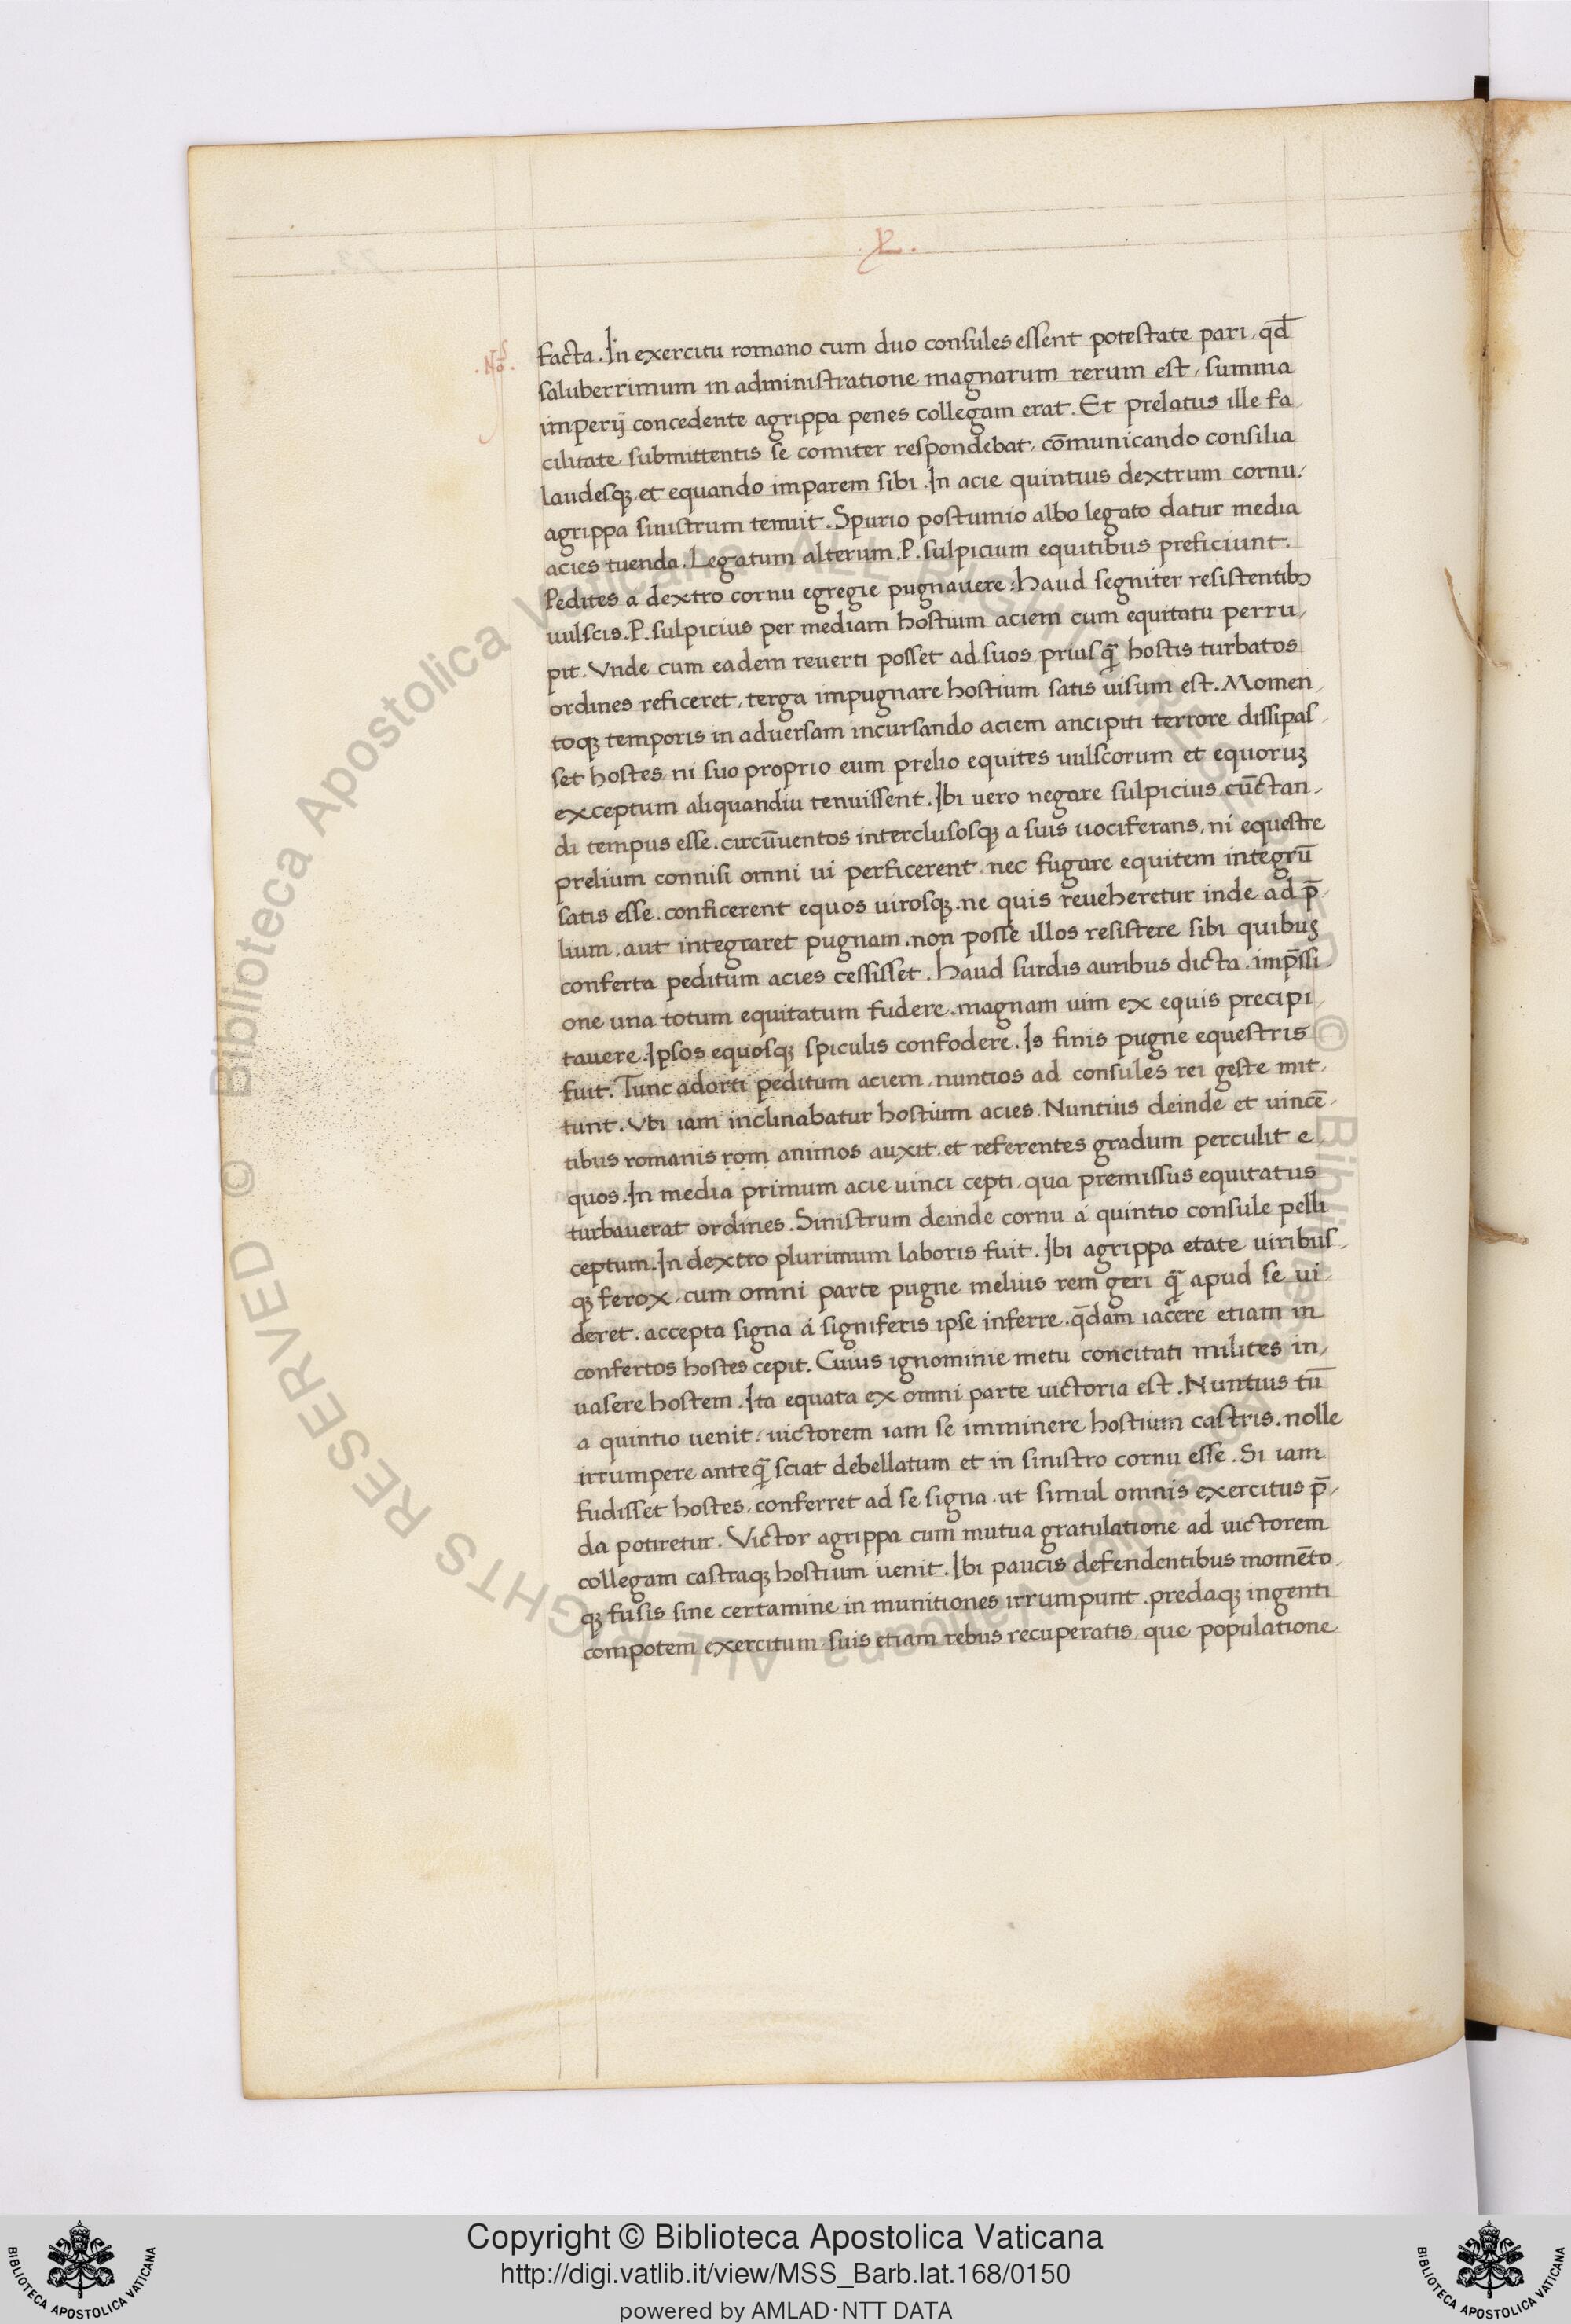 .L.
.No.
facta. In exercitu romano cum duo consules essent potestate pari, qđ
saluberrimum in administratione magnarum rerum est, summa
imperij concedente agrippa penes collegam erat. Et prelatus ille fa,
cilitate submittentis se comiter respondebat, cōmunicando consilia
laudesqꝫ et equando imparem sibi. In acie quintius dextrum cornu.
agrippa sinistrum tenuit. Spurio postumio albo legato datur media
acies tuenda. Legatum alterum .P. sulpicium equitibus preficiunt.
Pedites a dextro cornu egregie pugnauere: haud segniter resistentibꝫ
uulscis. P. sulpicius per mediam hostium aciem cum equitatu perru,
pit. Vnde cum eadem reuerti posset ad suos priusq̄ hostis turbatos
ordines reficeret, terga impugnare hostium satis uisum est. Momen,
toqꝫ temporis in aduersam incursando aciem ancipiti terrore dissipas,
set hostes, ni suo proprio eum prelio equites uulscorum et equoruꝫ
exceptum aliquandiu tenuissent. Ibi uero negare sulpicius cūctan,
di tempus esse. circūuentos interclusosqꝫ a suis uociferans, ni equestre
prelium connisi omni ui perficerent. nec fugare equitem integrū
satis esse. conficerent equos uirosqꝫ. ne quis reueheretur inde ad p̄,
lium, aut integraret pugnam. non posse illos resistere sibi quibus
conferta peditum acies cessisset. Haud surdis auribus dicta. imp̄ssi,
one una totum equitatum fudere. magnam uim ex equis precipi,
tauere. Ipsos equosqꝫ spiculis confodere. Is finis pugne equestris
fuit. Tunc adorti peditum aciem, nuntios ad consules rei geste mit,
tunt. Vbi iam inclinabatur hostium acies. Nuntius deinde et uincē,
tibus romanis rom animos auxit. et referentes gradum perculit e,
quos. In media primum acie uinci cepti, qua premissus equitatus
turbauerat ordines. Sinistrum deinde cornu a quintio consule pelli
ceptum. In dextro plurimum laboris fuit. Ibi agrippa etate uiribus,
qꝫ ferox, cum omni parte pugne melius rem geri q̄ apud se ui,
deret. accepta signa a signiferis ipse inferre. q̄dam iacere etiam in
confertos hostes cepit. Cuius ignominie metu concitati milites in,
uasere hostem. Ita equata ex omni parte uictoria est. Nuntius tū
a quintio uenit, uictorem iam se imminere hostium castris. nolle
irrumpere anteq̄ sciat debellatum et in sinistro cornu esse. Si iam
fudisset hostes, conferret ad se signa. ut simul omnis exercitus p̄,
da potiretur. Victor agrippa cum mutua gratulatione ad uictorem
collegam castraqꝫ hostium uenit. Ibi paucis defendentibus momēto,
qꝫ fusis sine certamine in munitiones irrumpunt. predaqꝫ ingenti
compotem exercitum suis etiam rebus recuperatis, que populatione
© Biblioteca Apostolica Vaticana ALL RIGHTS RESERVED © Biblioteca Apostolica Vaticana ALL RIGHTS RESERVED
BIBLIOTECA APOSTOLICA VATICANA
Copyright © Biblioteca Apostolica Vaticana
http://digi.vatlib.it/view/MSS_Barb.lat.168/0150
powered by AMLAD·NTT DATA
BIBLIOTECA APOSTOLICA VATICANA